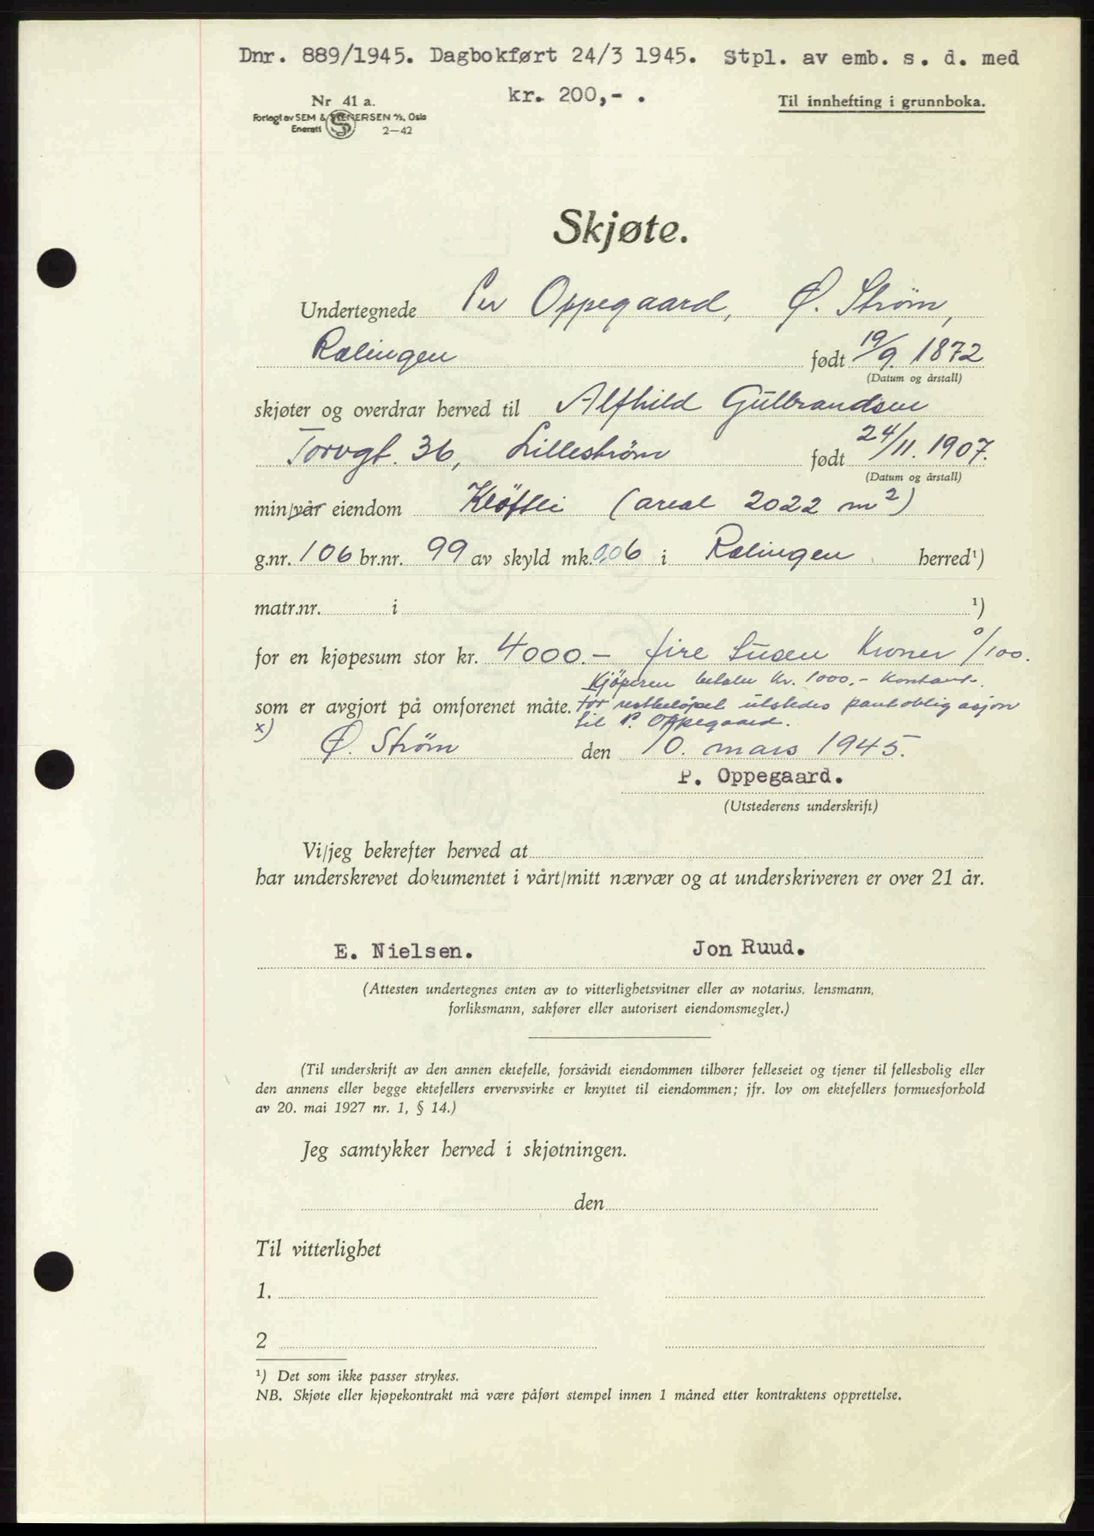 Dnr. 889/1945. Dagbokført 24/3 1945. Stpl. av emb. s. d. med
kr. 200,- .
Nr 41 a.
Forlagt av SEM & STENERSEN A/S, Oslo
Enerett 2—42
Til innhefting i grunnboka.
Skjøte.
Undertegnede Per Oppegaard, Ø. Strøm,
Rælingen født 19/9. 1872
(Datum og årstall)
skjøter og overdrar herved til Alfhild Gulbrandsen
Torvgt. 36, Lillestrøm født 24/11. 1907.
(Datum og årstall)
min/vår eiendom Kløftli (areal 2022 m²)
g.nr. 106 br.nr. 99 av skyld mk. 0,06 i Rælingen herred¹)
matr.nr. i ¹)
for en kjøpesum stor kr. 4000.— fire tusen Kroner 0/100.
Kjöperen betaler kr. 1000.- kontant.
som er avgjort på omforenet måte. for restbelöpet utstedes pantobligasjon
til P. Oppegaard.
x)
Ø. Strøm den 10. mars 1945.
P. Oppegaard.
(Utstederens underskrift)
Vi/jeg bekrefter herved at
har underskrevet dokumentet i vårt/mitt nærvær og at underskriveren er over 21 år.
E. Nielsen. Jon Ruud.
(Attesten undertegnes enten av to vitterlighetsvitner eller av notarius, lensmann,
forliksmann, sakfører eller autorisert eiendomsmegler.)
(Til underskrift av den annen ektefelle, forsåvidt eiendommen tilhører felleseiet og tjener til fellesbolig eller
den annens eller begge ektefellers ervervsvirke er knyttet til eiendommen; jfr. lov om ektefellers formuesforhold
av 20. mai 1927 nr. 1, § 14.)
Jeg samtykker herved i skjøtningen.
den
Til vitterlighet
1.
2
¹) Det som ikke passer strykes.
NB. Skjøte eller kjøpekontrakt må være påført stempel innen 1 måned etter kontraktens opprettelse.